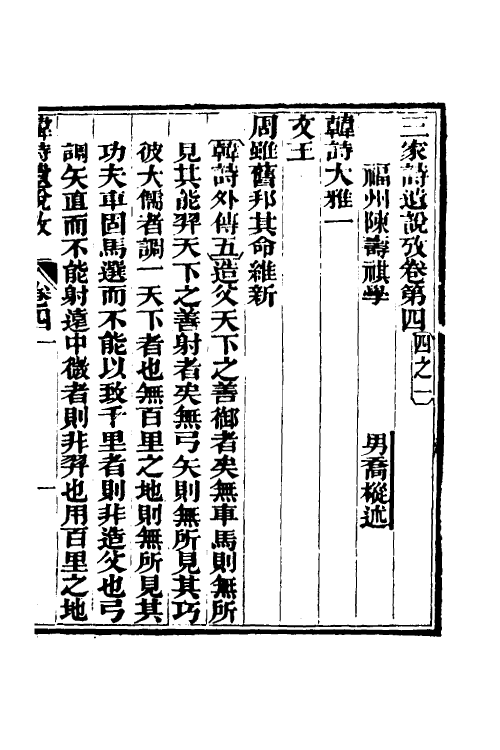 三家詩遺說攷卷第四四之一
福州陳壽祺學 男喬樅述
韓詩大雅一
文王
周雖舊邦其命維新
韓詩外傳五造父天下之善御者矣無車馬則無所
見其能羿天下之善射者矣無弓矢則無所見其巧
彼大儒者調一天下者也無百里之地則無所見其
功夫車固馬選而不能以致千里者則非造父也弓
調矢直而不能射遠中微者則非羿也用百里之地
韓詩遺說攷 卷四一 一